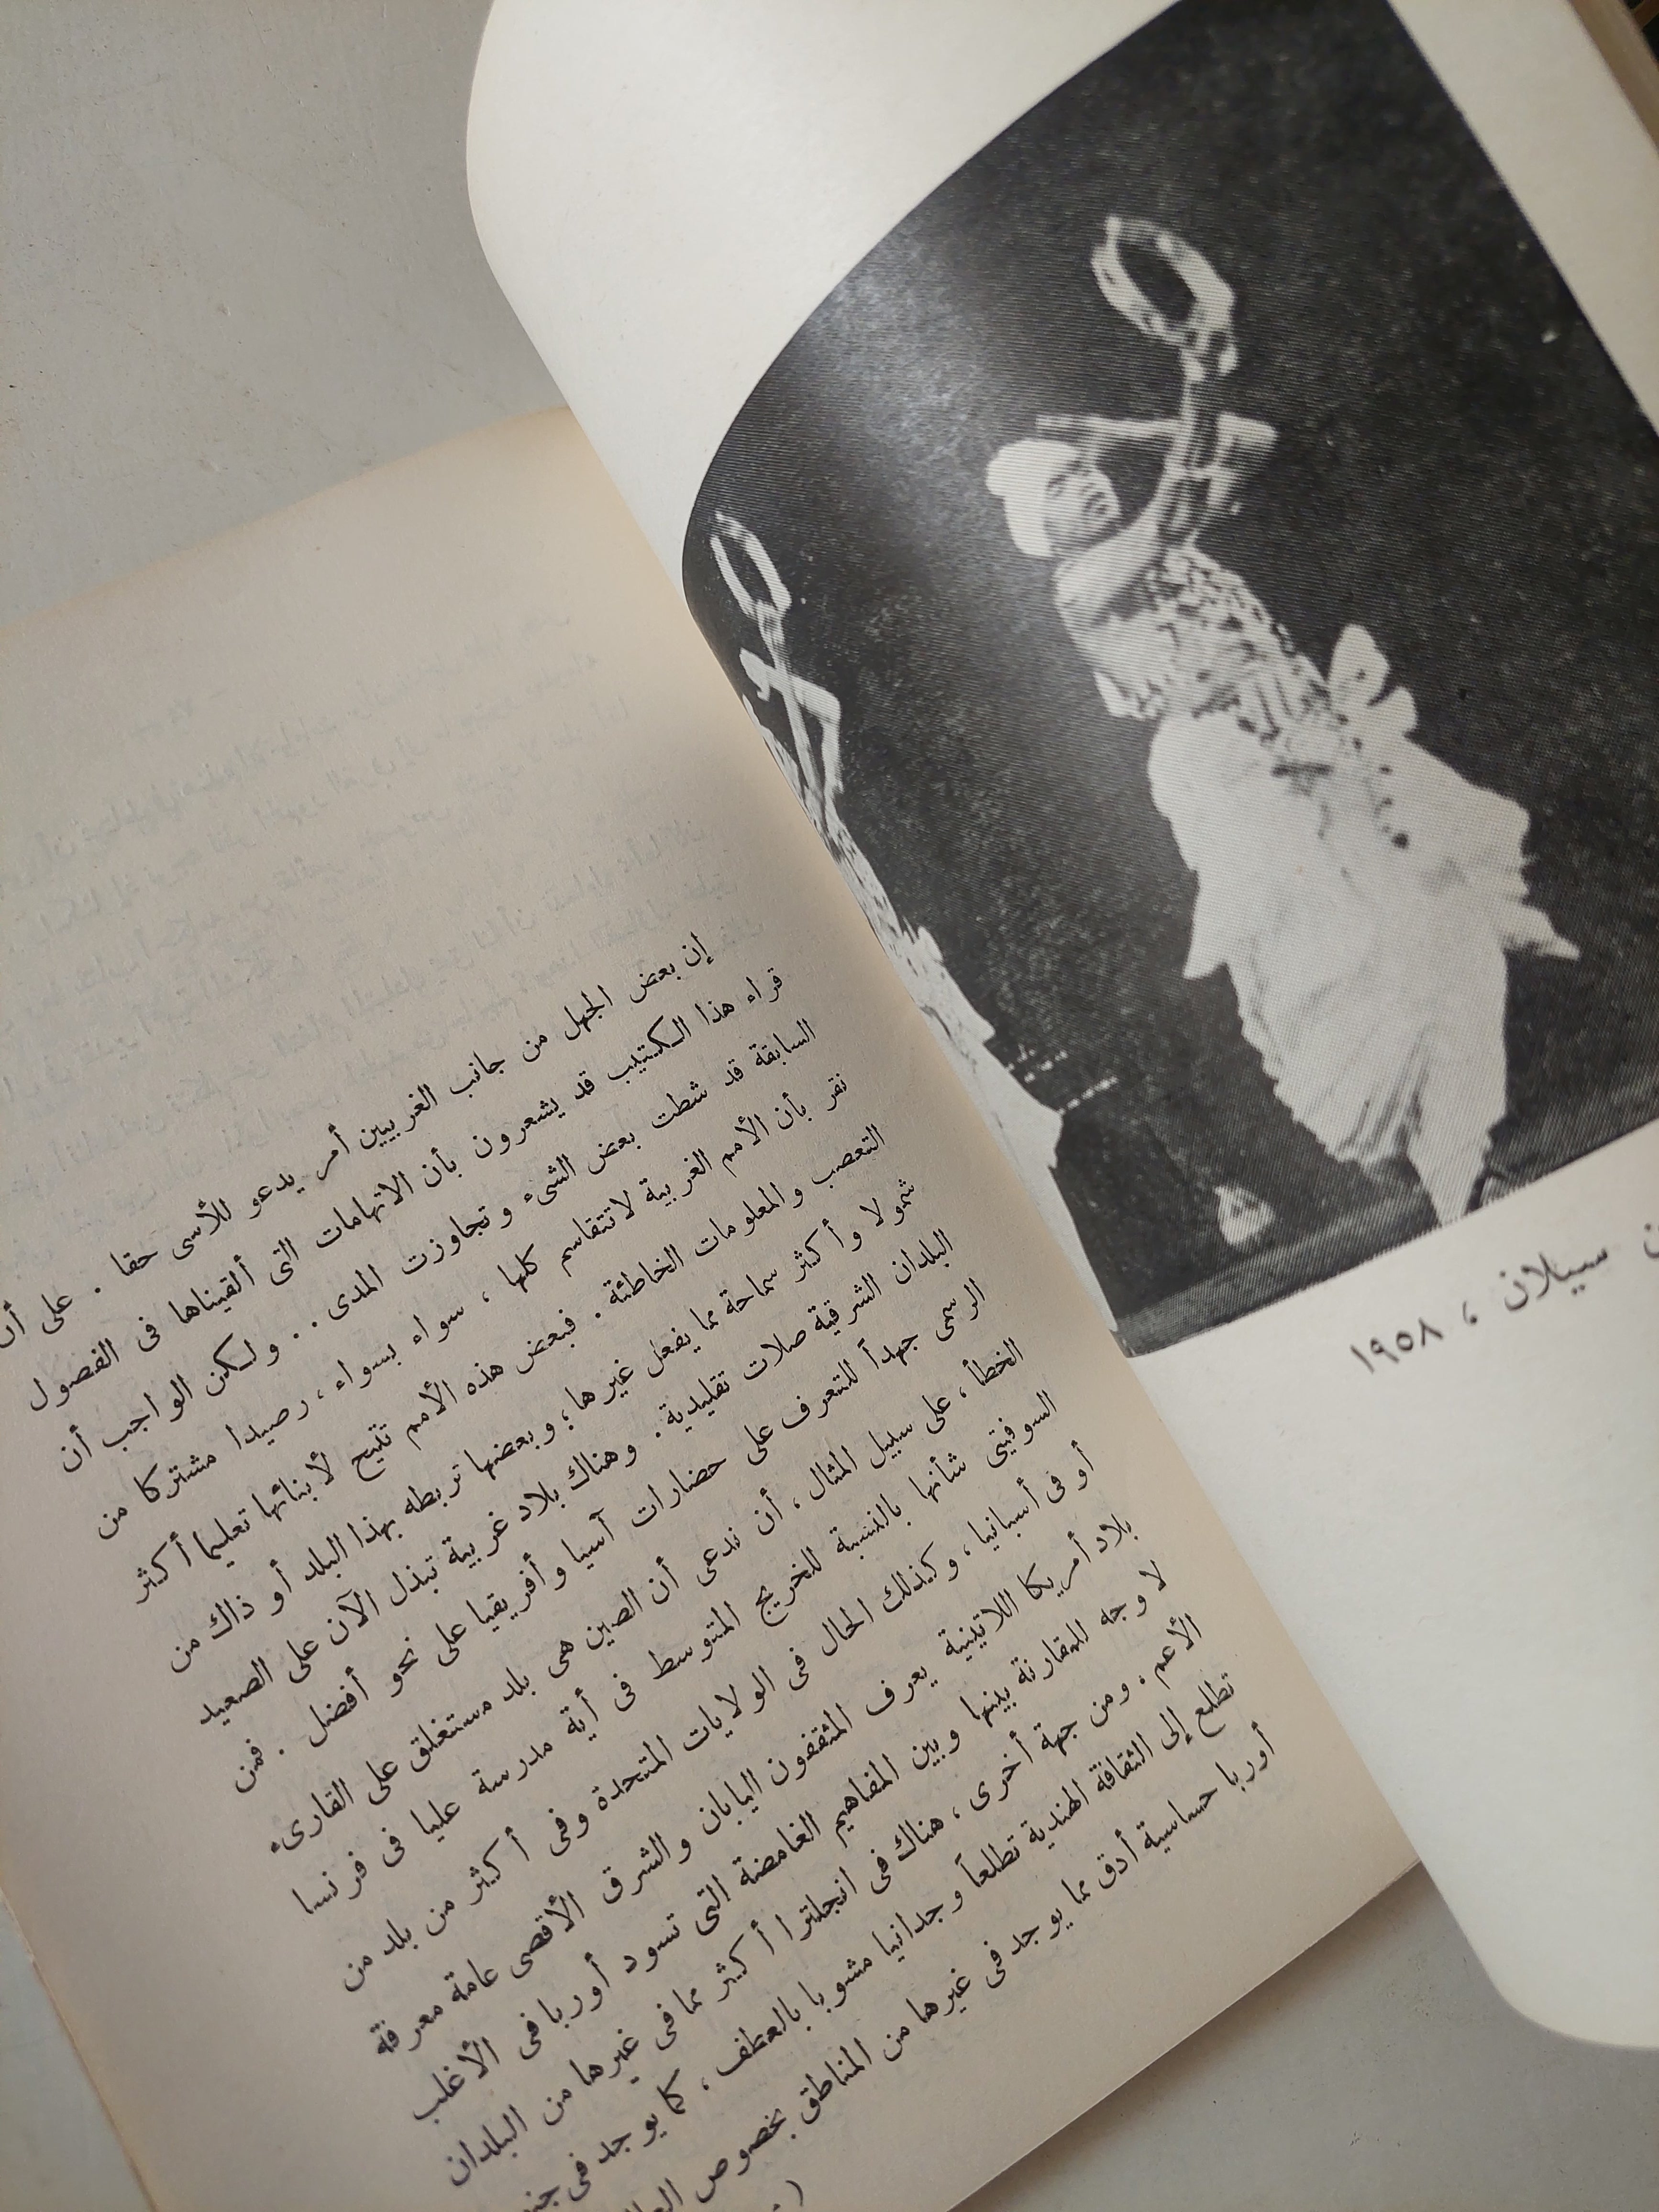 إن بعض الجهل من جانب الغربيين أمر يدعو للأسى حقا . على أن
قراء هذا الكتيب قد يشعرون بأن الاتهامات التى ألقيناها فى الفصول
السابقة قد شطت بعض الشىء وتجاوزت المدى . . ولكن الواجب أن
نقر بأن الأمم الغربية لا تتقاسم كلها ، سواء بسواء ، رصيدا مشتركا من
التعصب والمعلومات الخاطئة . فبعض هذه الأمم تتيح لأبنائها تعليما أكثر
شمولا وأكثر سماحة مما يفعل غيرها؛ وبعضها تربطه بهذا البلد أو ذاك من
البلدان الشرقية صلات تقليدية . وهناك بلاد غربية تبذل الآن على الصعيد
الرسمى جهداً للتعرف على حضارات آسيا وأفريقيا على نحو أفضل . فمن
الخطأ ، على سبيل المثال ، أن ندعى أن الصين هى بلد مستغلق على القارىء
السوفيتى شأنها بالنسبة للخريج المتوسط فى أية مدرسة عليا فى فرنسا
أو فى أسبانيا ، وكذلك الحال فى الولايات المتحدة وفى أكثر من بلد من
بلاد أمريكا اللاتينية يعرف المثقفون اليابان والشرق الأقصى عامة معرفة
لا وجه للمقارنة بينها وبين المفاهيم الغامضة التى تسود أوربا فى الأغلب
الأعم . ومن جهة أخرى ، هناك فى انجلترا أكثر مما فى غيرها من البلدان
تطلع إلى الثقافة الهندية تطلعاً وجدانيا مشوبا بالعطف ، كما يوجد فى
أوربا حساسية أدق مما يوجد فى غيرها من المناطق بخصوص
سيلان ، ١٩٥٨